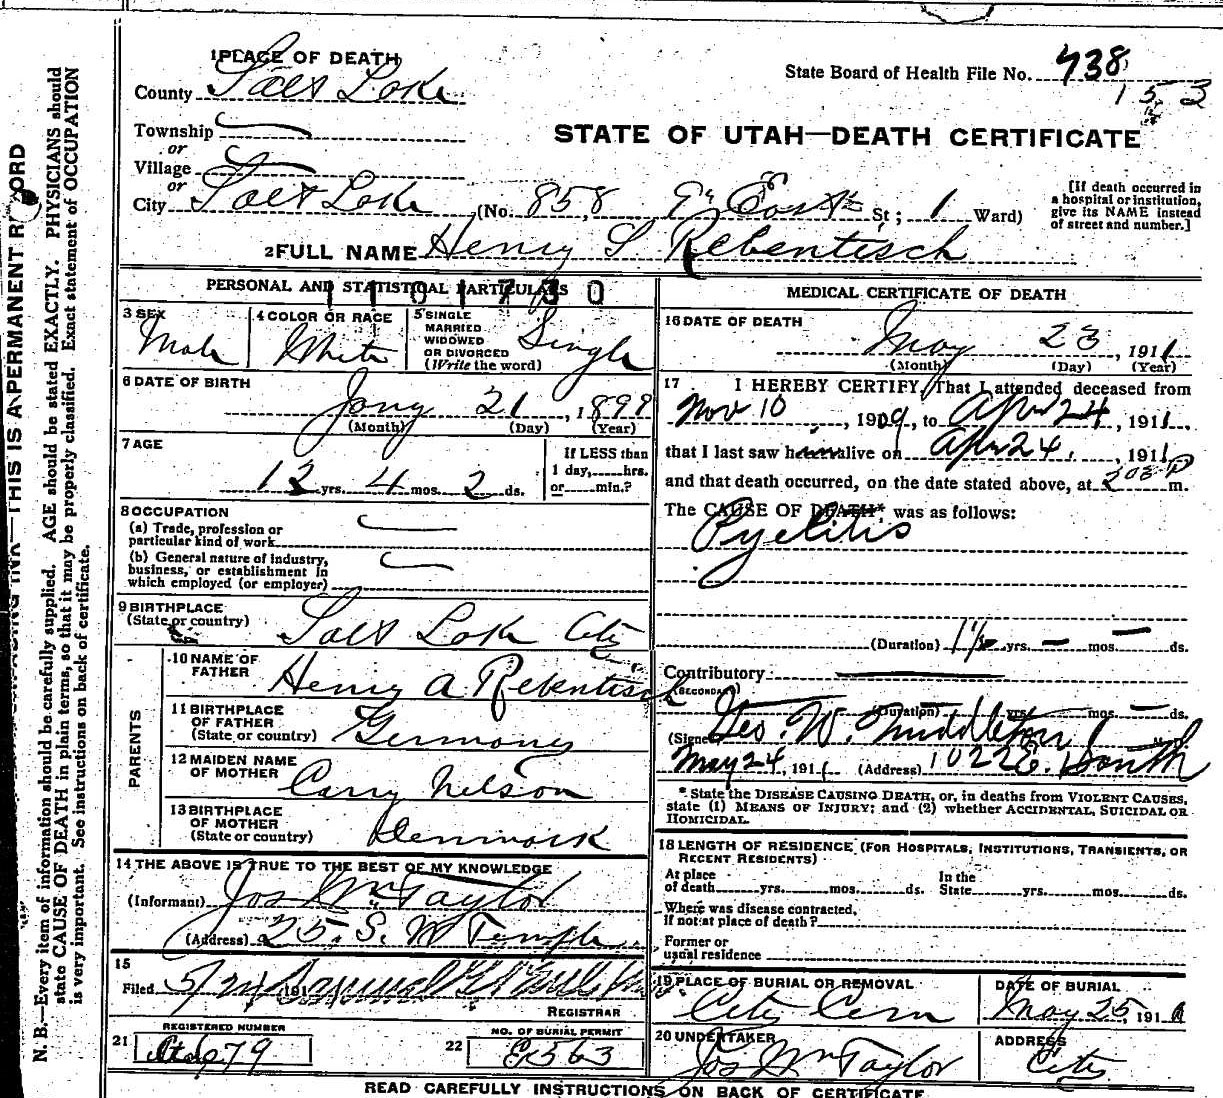 1 PLACE OF DEATH
County Salt Lake
State Board of Health File No. 738
153
Township
or
Village
or
STATE OF UTAH—DEATH CERTIFICATE
City Salt Lake (No. 858 East St; 1 Ward)
[If death occurred in a hospital or institution, give its NAME instead of street and number.]
2 FULL NAME Henry S. Rebentisch
PERSONAL AND STATISTICAL PARTICULARS
1101730
3 SEX Male
4 COLOR OR RACE White
5 SINGLE MARRIED WIDOWED OR DIVORCED (Write the word) Single
6 DATE OF BIRTH
Jany 21, 1899
(Month) (Day) (Year)
7 AGE
12 yrs. 4 mos. 2 ds.
If LESS than 1 day, hrs. or min.?
8 OCCUPATION
(a) Trade, profession or particular kind of work
(b) General nature of industry, business, or establishment in which employed (or employer)
9 BIRTHPLACE
(State or country) Salt Lake City
PARENTS
10 NAME OF FATHER Henry A Rebentisch
11 BIRTHPLACE OF FATHER (State or country) Germany
12 MAIDEN NAME OF MOTHER Carry Nelson
13 BIRTHPLACE OF MOTHER (State or country) Denmark
14 THE ABOVE IS TRUE TO THE BEST OF MY KNOWLEDGE
(Informant) Jos Wm Taylor
(Address) 25 S. W Temple
15
Filed 5/24 191
REGISTRAR
21 REGISTERED NUMBER 79
22 NO. OF BURIAL PERMIT E563
MEDICAL CERTIFICATE OF DEATH
16 DATE OF DEATH
May 23, 1911
(Month) (Day) (Year)
17 I HEREBY CERTIFY, That I attended deceased from
Nov 10, 1909, to Apr 24, 1911,
that I last saw him alive on Apr 24, 1911,
and that death occurred, on the date stated above, at 203 P m.
The CAUSE OF DEATH* was as follows:
Pyelitis
(Duration) 1½ yrs. — mos. — ds.
Contributory
(SECONDARY)
(Duration) yrs. mos. ds.
(Signed) Geo. W. Middleton M.D.
May 24, 1911 (Address) 1022 E. 1 South
* State the DISEASE CAUSING DEATH, or, in deaths from VIOLENT CAUSES, state (1) MEANS OF INJURY; and (2) whether ACCIDENTAL, SUICIDAL OR HOMICIDAL.
18 LENGTH OF RESIDENCE (FOR HOSPITALS, INSTITUTIONS, TRANSIENTS, OR RECENT RESIDENTS)
At place of death yrs. mos. ds. In the State yrs. mos. ds.
Where was disease contracted, if not at place of death?
Former or usual residence
19 PLACE OF BURIAL OR REMOVAL City Cem
DATE OF BURIAL May 25, 191
20 UNDERTAKER Jos Wm Taylor
ADDRESS City
READ CAREFULLY INSTRUCTIONS ON BACK OF CERTIFICATE.
THIS IS A PERMANENT RECORD
N. B.—Every item of information should be carefully supplied. AGE should be stated EXACTLY. PHYSICIANS should
state CAUSE OF DEATH in plain terms, so that it may be properly classified. Exact statement of OCCUPATION
is very important. See instructions on back of certificate.